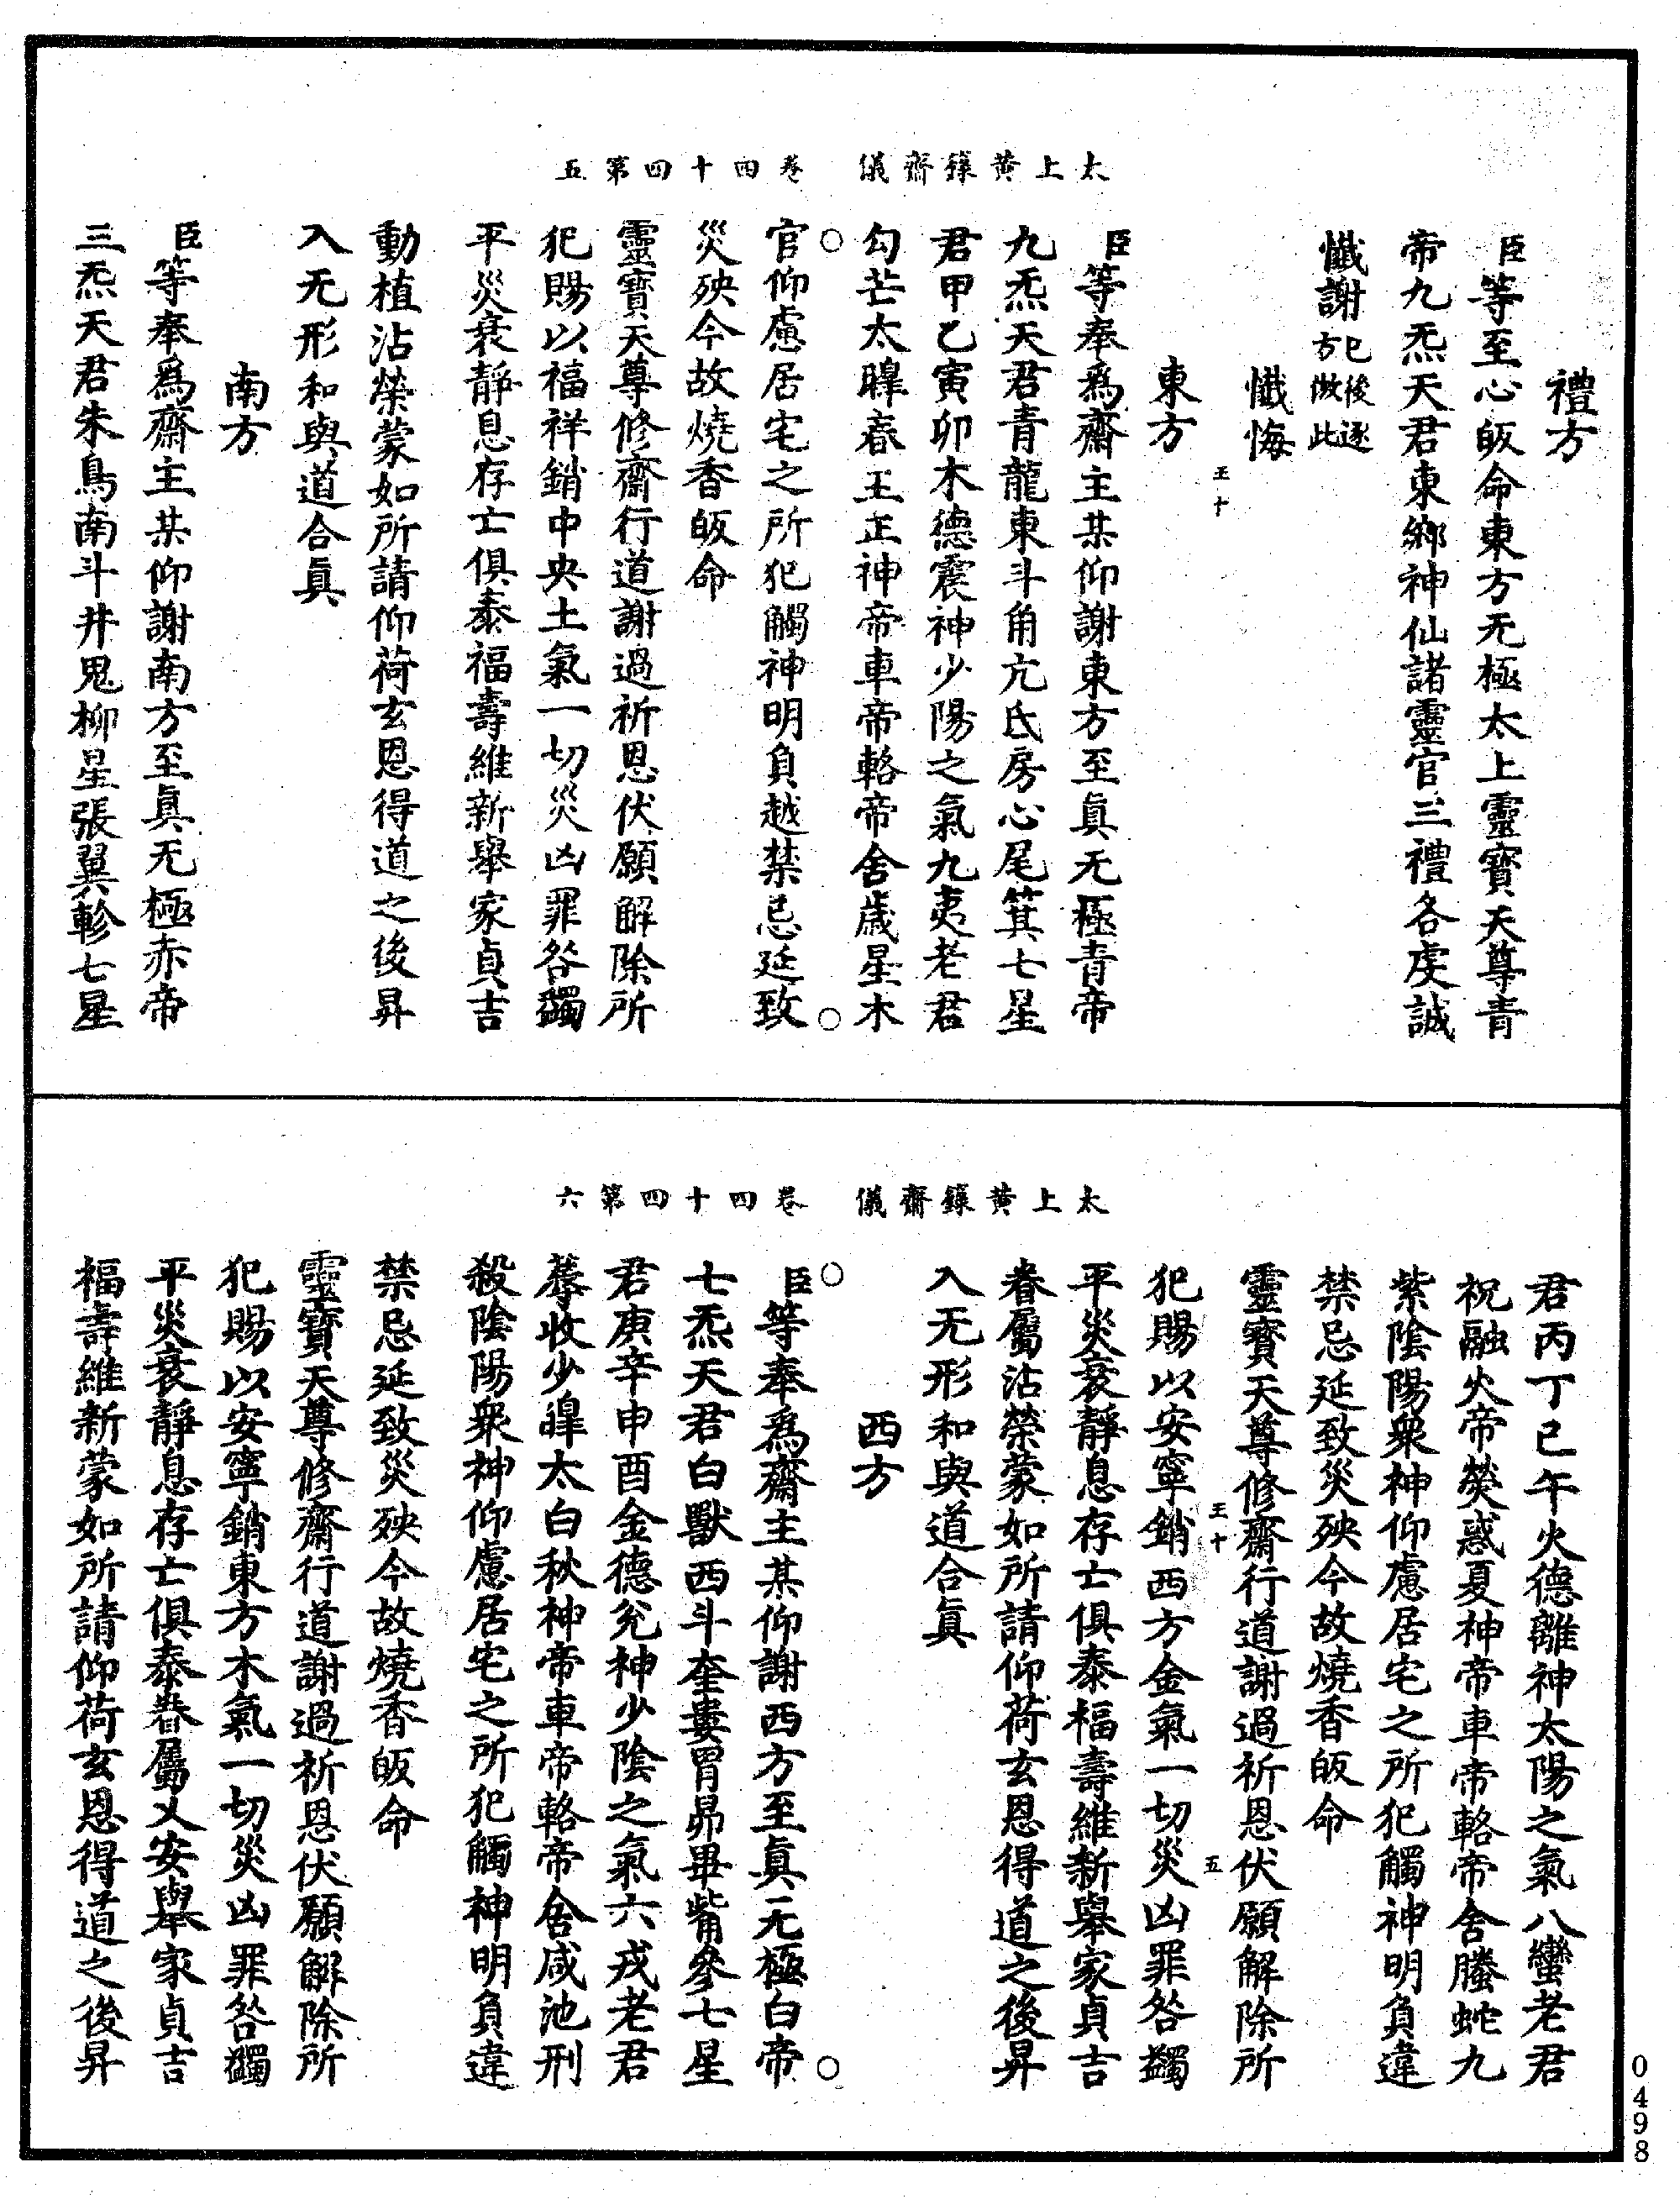 太上黃籙齋儀　卷四十四第五
禮方
臣等至心皈命東方无極太上靈寶天尊青
帝九炁天君東鄉神仙諸靈官三禮各虔誠
懺謝已後逐方倣此
懺悔
王十
東方
臣等奉爲齋主某仰謝東方至眞无極青帝
九炁天君青龍東斗角亢氐房心尾箕七星
君甲乙寅卯木德震神少陽之氣九夷老君
勾芒太皥春王正神帝車帝輅帝舍歲星木
官仰慮居宅之所犯觸神明負越禁忌延致
災殃今故燒香皈命
靈寶天尊修齋行道謝過祈恩伏願解除所
犯賜以福祥銷中央土氣一切災凶罪咎蠲
平災衰靜息存亡俱泰福壽維新舉家貞吉
動植沾榮蒙如所請仰荷玄恩得道之後昇
入无形和與道合眞
南方
臣等奉爲齋主某仰謝南方至眞无極赤帝
三炁天君朱鳥南斗井鬼柳星張翼軫七星
太上黃籙齋儀　卷四十四第六
君丙丁巳午火德離神太陽之氣八蠻老君
祝融火帝熒惑夏神帝車帝輅帝舍螣蛇九
紫陰陽衆神仰慮居宅之所犯觸神明負違
禁忌延致災殃今故燒香皈命
靈寶天尊修齋行道謝過祈恩伏願解除所
王十　五
犯賜以安寧銷西方金氣一切災凶罪咎蠲
平災衰靜息存亡俱泰福壽維新舉家貞吉
眷屬沾榮蒙如所請仰荷玄恩得道之後昇
入无形和與道合眞
西方
臣等奉爲齋主某仰謝西方至眞无極白帝
七炁天君白獸西斗奎婁胃昴畢觜參七星
君庚辛申酉金德兌神少陰之氣六戎老君
蓐收少皥太白秋神帝車帝輅帝舍咸池刑
殺陰陽衆神仰慮居宅之所犯觸神明負違
禁忌延致災殃今故燒香皈命
靈寶天尊修齋行道謝過祈恩伏願解除所
犯賜以安寧銷東方木氣一切災凶罪咎蠲
平災衰靜息存亡俱泰眷屬乂安舉家貞吉
福壽維新蒙如所請仰荷玄恩得道之後昇
0498